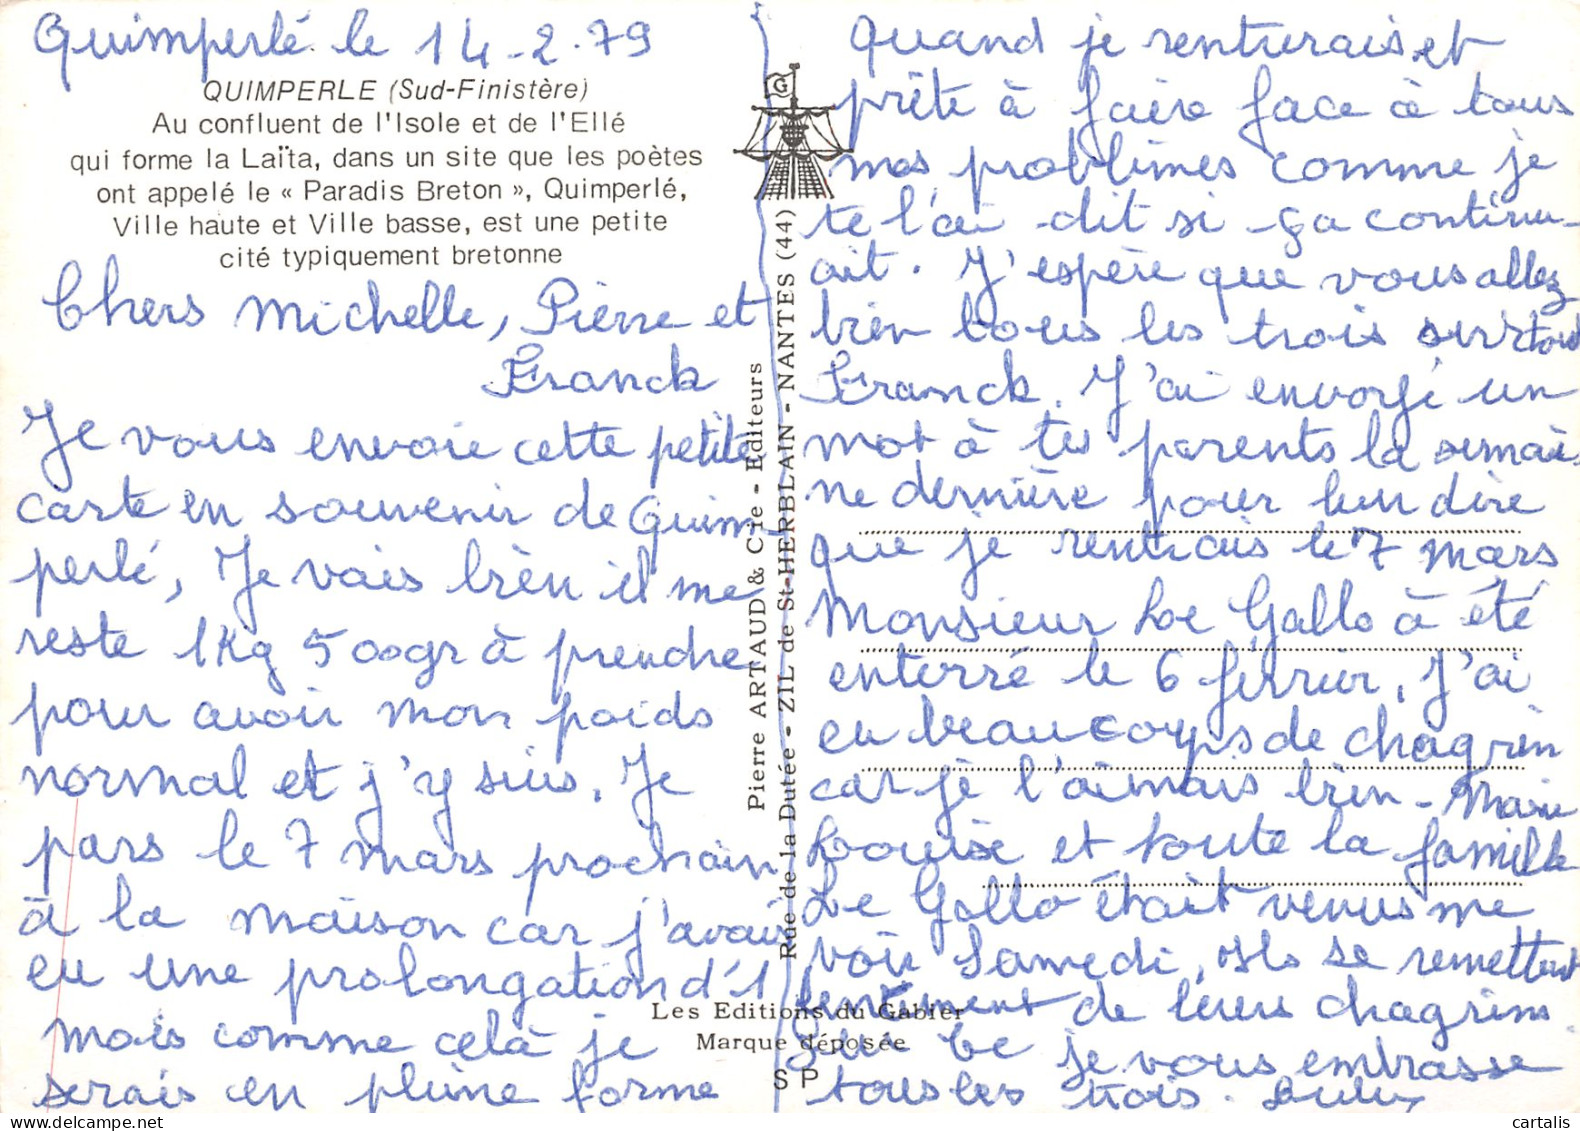 Quimperlé le 14-2-79
QUIMPERLE (Sud-Finistère)
Au confluent de l'Isole et de l'Ellé
qui forme la Laïta, dans un site que les poètes
ont appelé le « Paradis Breton », Quimperlé,
Ville haute et Ville basse, est une petite
cité typiquement bretonne
Chers Michelle, Pierre et
Franck
Je vous envoie cette petite
carte en souvenir de Quim-
perlé, Je vais bien il me
reste 1Kg 500gr à prendre
pour avoir mon poids
normal et j'y suis. Je
pars le 7 mars prochain
à la maison car j'avais
eu une prolongation d'1
mois comme celà je
serais en pleine forme
G
Pierre ARTAUD & Cie - Editeurs
Rue de la Dutée - ZIL de St-HERBLAIN - NANTES (44)
Les Editions du Gabier
Marque déposée
S P
quand je rentrerais et
prête à faire face à tous
mes problèmes comme je
te l'ai dit si ça continu-
ait. J'espère que vous allez
bien tous les trois surtout
Franck. J'ai envoyé un
mot à tes parents la semai
ne dernière pour leur dire
que je rentrais le 7 mars
Monsieur Le Gallo à été
enterré le 6 février, J'ai
eu beaucoups de chagrin
car je l'aimais bien - Marie
Louise et toute la famille
Le Gallo était venus me
voir Samedi, ils se remettent
lentement de leurs chagrins.
je vous embrasse
tous les trois.